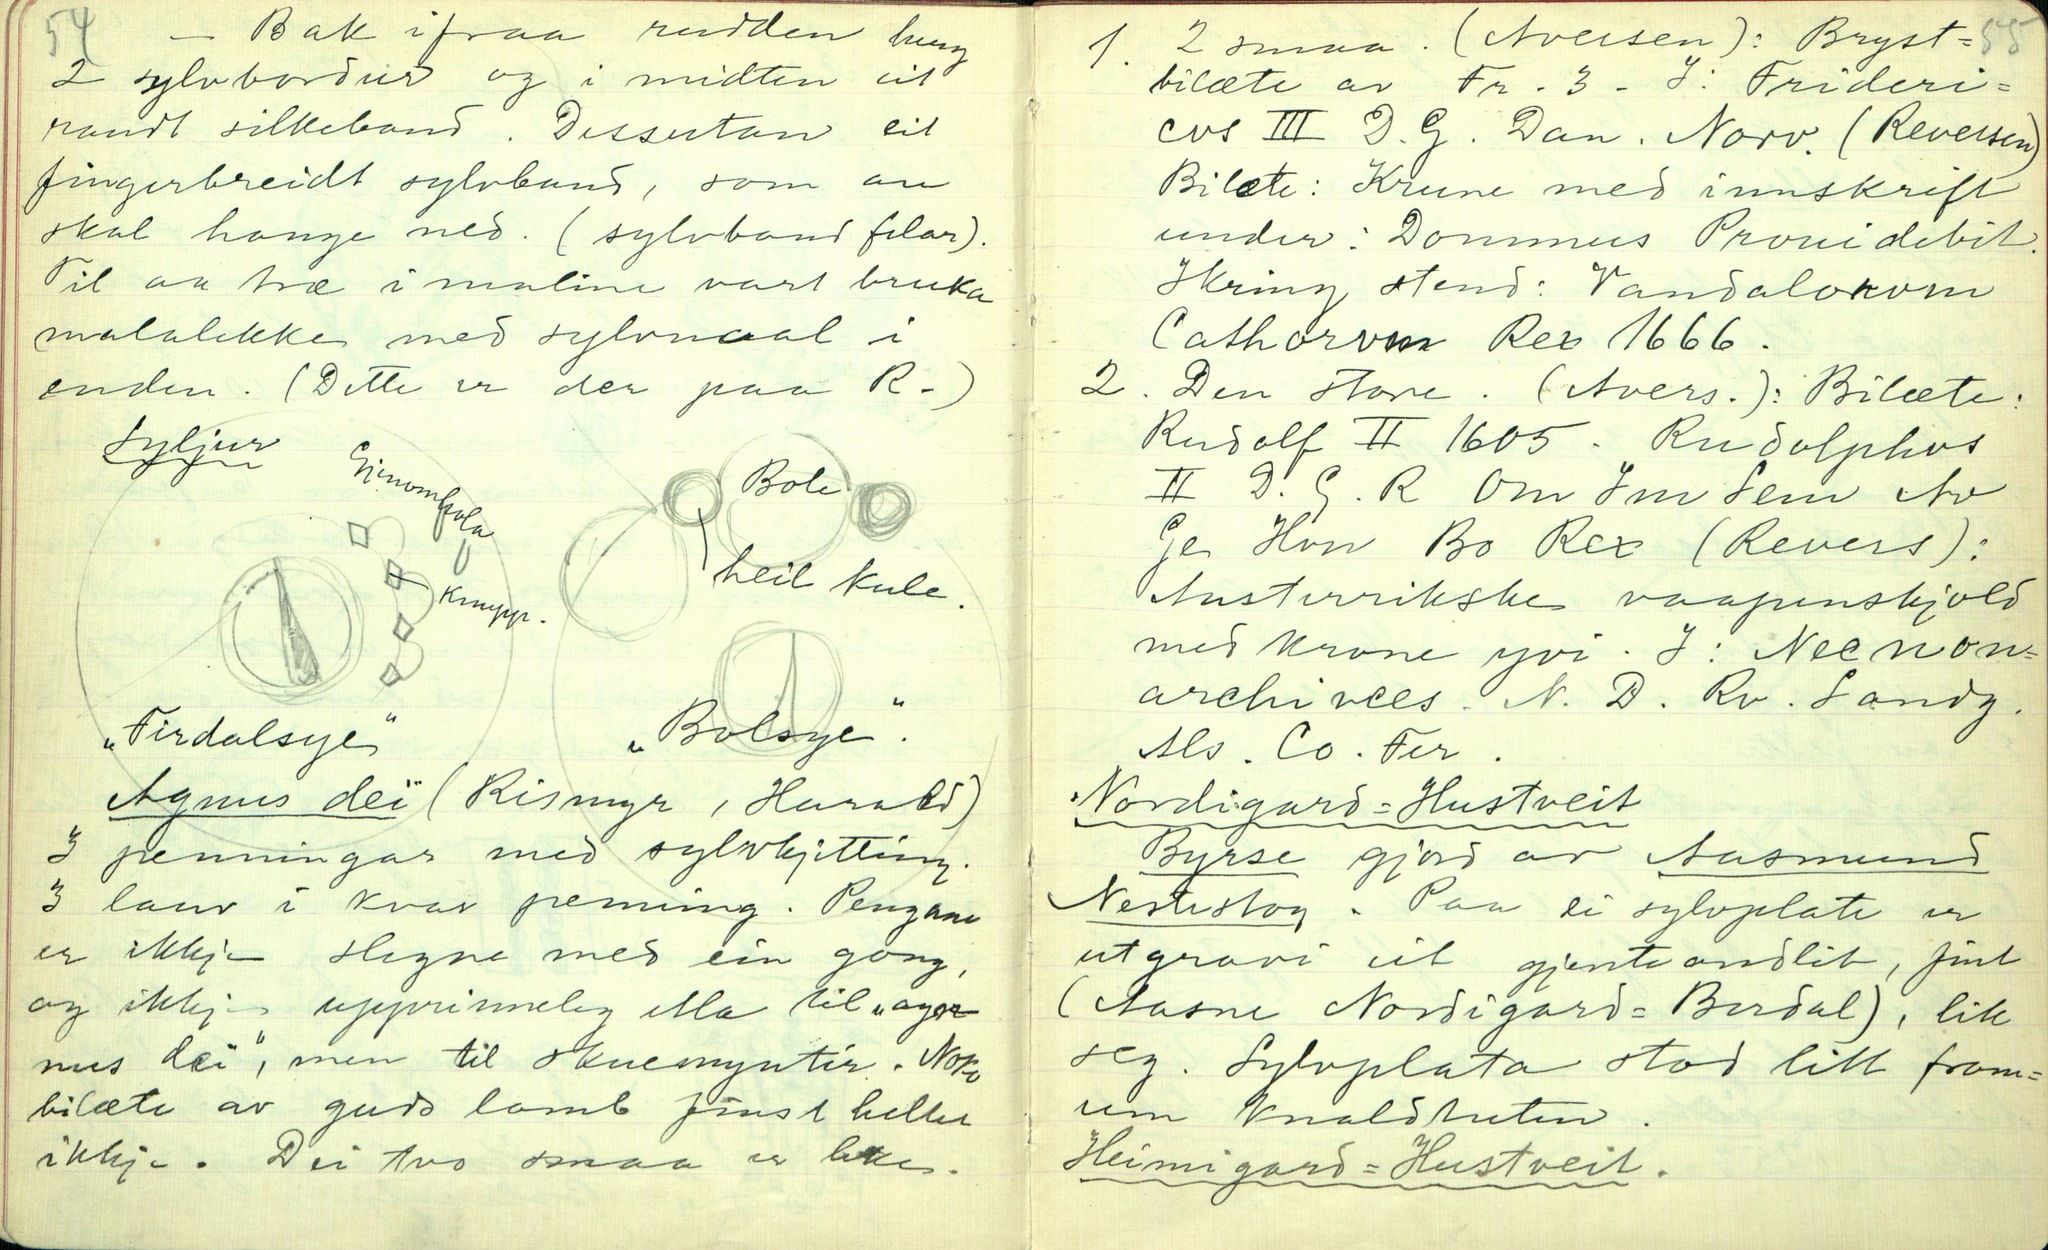 54
— Bak ifraa rudden heng
2 sylvbordur og i midten eit
raudt silkeband. Dessutan eit
fingerbreidt sylvband, som au
skal hange ned. (sylvband felar).
Til aa træ i maline vart bruka
malalekke med sylvnaal i
enden. (Dette er der paa R-)
Syljur
Gjenomhola
Knupp.
Bole
heil kule.
"Firdalsye"
"Bolsye".
Agnus dei (Rismyr, Harald)
3 penningar med sylvkjitting.
3 lauv i kvar penning. Pengane
er ikkje slegne med ein gong,
og ikkje upprinneleg etla til "ag
nus dei", men til skuemyntir. Noko
bilæte av guds lamb finst heller
ikkje. Dei tvo smaa er like.
55
1. 2 smaa. (Aversen): Bryst=
bilæte av Fr. 3. I: Frideri=
cvs III D.G. Dan. Norv. (Reversen)
Bilæte: Krune med innskrift
under: Dominus Providebit.
Ikring stend: Vandalorvm
Gothorvm Rex 1666.
2. Den store. (Avers.): Bilæte:
Rudolf II 1605. Rudolphvs
II D. G. R Om Im Sem Av
Ge Hvn Bo Rex (Revers):
Austerrikske vaapenskjold
med krone yvi. I: Nec non=
archivces. N. D. Rv. Landg.
Als. Co. Fer.
Nordigard=Hustveit
Byrse gjord av Aasmund
Nestestog. Paa ei sylvplate er
utgravi eit gjenteandlit, fint
(Aasne Nordigard=Berdal), lik
seg. Sylvplata stod litt fram=
um knaldhuten.
Heimigard=Hustveit.